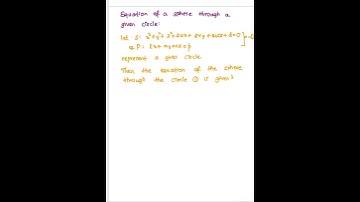 Equation of a sphere through a
given circle:
let S: x²+y²+z²+2ux+2vy+2wz+d=0
& P: lx+my+nz=p
represent a given circle
Then the equation of the sphere
through the circle ① is given